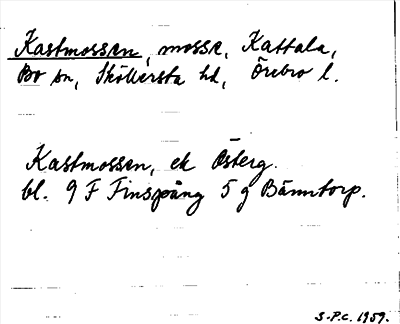 Kastmossen, mosse, Kattala,
Bo sn, Sköllersta hd, Örebro l.
Kastmossen, ek Österg.
bl. 9 F Finspång 5 g Bänntorp.
S-P.C. 1959.